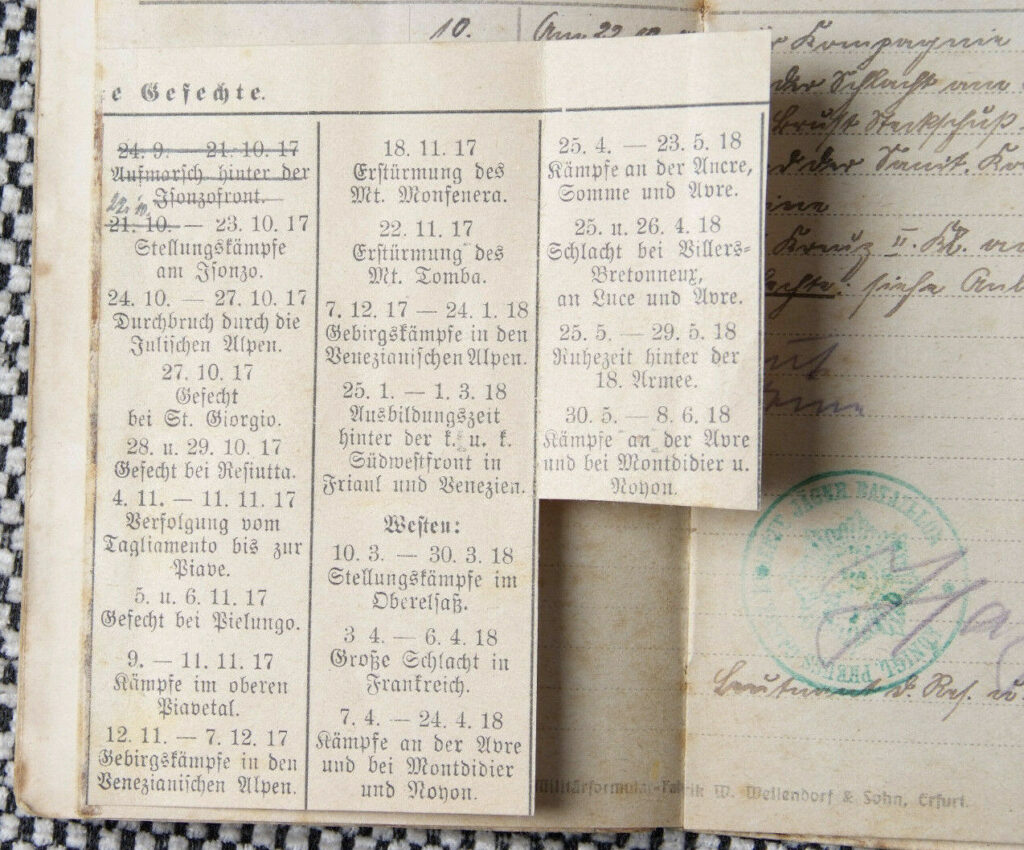 10.
Am 22.
e Gefechte.
24. 9. — 21. 10. 17
Aufmarsch hinter der
Isonzofront.
22. 10.
21. 10. — 23. 10. 17
Stellungskämpfe
am Isonzo.
24. 10. — 27. 10. 17
Durchbruch durch die
Julischen Alpen.
27. 10. 17
Gefecht
bei St. Giorgio.
28. u. 29. 10. 17
Gefecht bei Resiutta.
4. 11. — 11. 11. 17
Verfolgung vom
Tagliamento bis zur
Piave.
5. u. 6. 11. 17
Gefecht bei Pielungo.
9. — 11. 11. 17
Kämpfe im oberen
Piavetal.
12. 11. — 7. 12. 17
Gebirgskämpfe in den
Venezianischen Alpen.
18. 11. 17
Erstürmung des
Mt. Monfenera.
22. 11. 17
Erstürmung des
Mt. Tomba.
7. 12. 17 — 24. 1. 18
Gebirgskämpfe in den
Venezianischen Alpen.
25. 1. — 1. 3. 18
Ausbildungszeit
hinter der k. u. k.
Südwestfront in
Friaul und Venezien.
Westen:
10. 3. — 30. 3. 18
Stellungskämpfe im
Oberelsaß.
3 4. — 6. 4. 18
Große Schlacht in
Frankreich.
7. 4. — 24. 4. 18
Kämpfe an der Avre
und bei Montdidier
und Noyon.
25. 4. — 23. 5. 18
Kämpfe an der Ancre,
Somme und Avre.
25. u. 26. 4. 18
Schlacht bei Villers-
Bretonneux,
an Luce und Avre.
25. 5. — 29. 5. 18
Ruhezeit hinter der
18. Armee.
30. 5. — 8. 6. 18
Kämpfe an der Avre
und bei Montdidier u.
Noyon.
Kompagnie
der Schlacht am
Brust Steckschuß.
der Sanit. Ko
Kreuz II. Kl. a
siehe Anl
JÄGER BATAILLON
KÖNIGL. PREUSS.
Leutnant d. Res. u
Militärformular-Fabrik W. Wellendorf & Sohn, Erfurt.